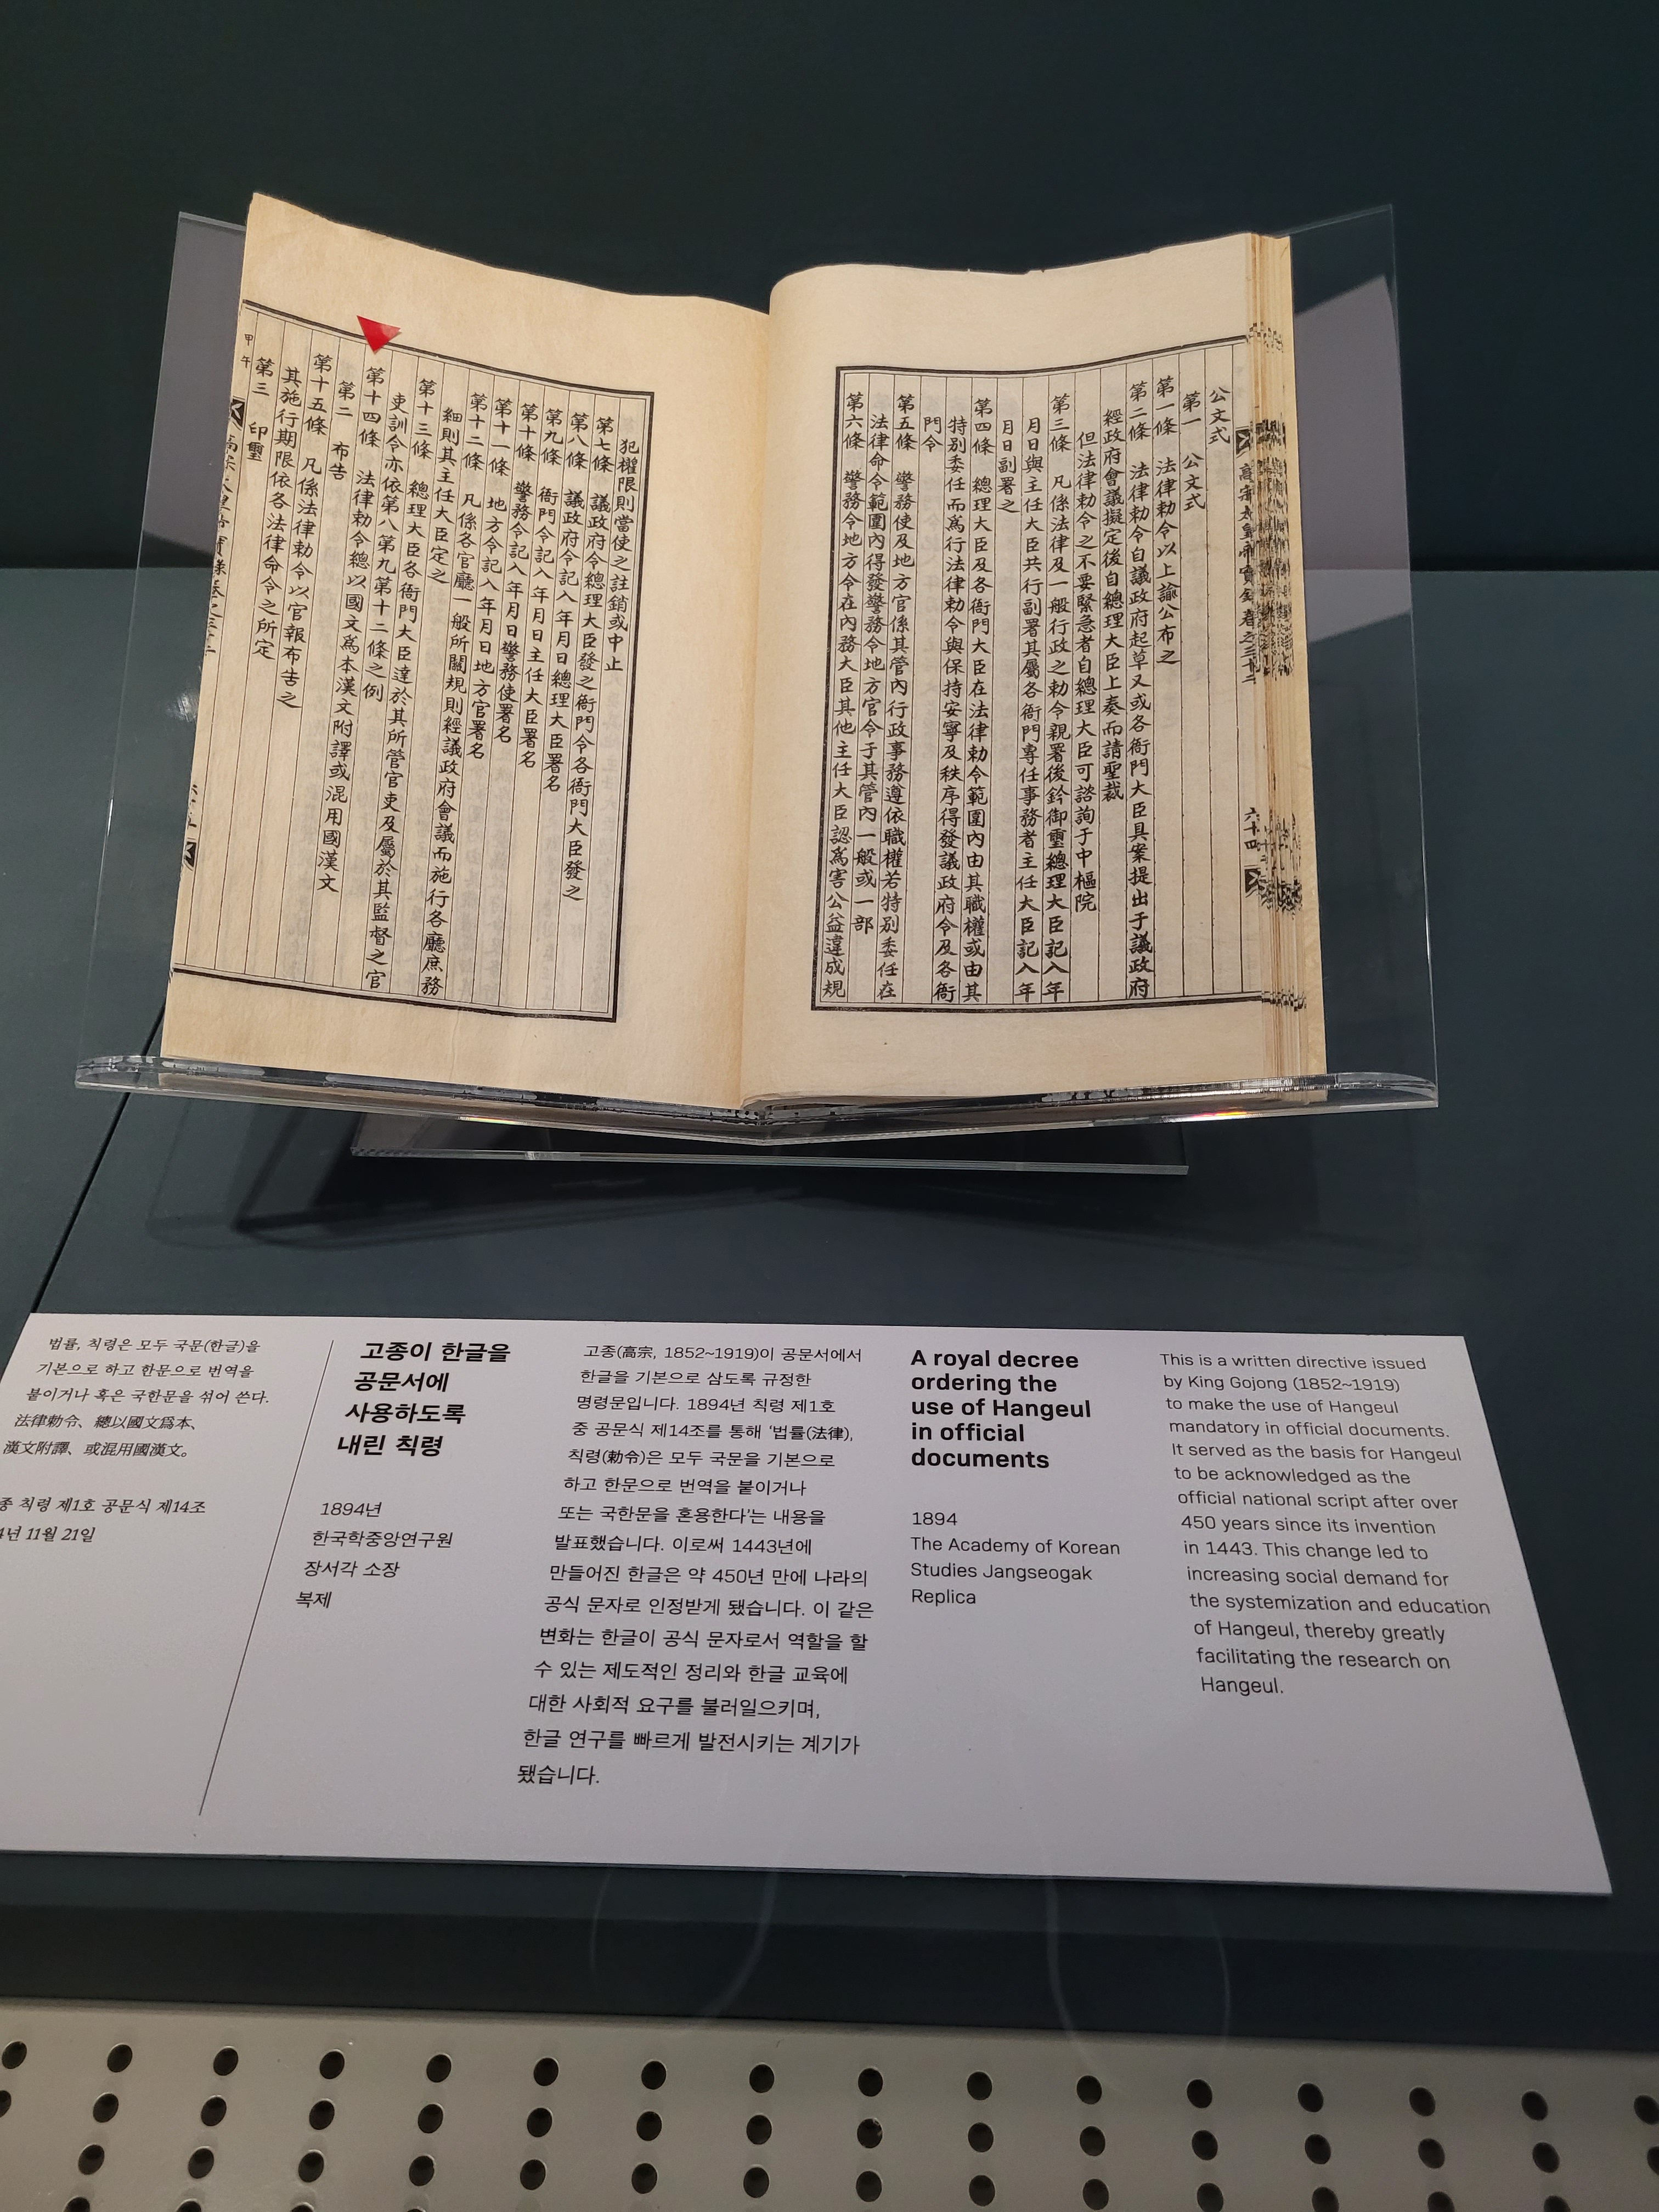 高宗太皇帝實錄卷之三十二 六十四
公文式
第一 公文式
第一條 法律勅令以上諭公布之
第二條 法律勅令自議政府起草又或各衙門大臣具案提出于議政府
經政府會議擬定後自總理大臣上奏而請聖裁
但法律勅令之不要緊急者自總理大臣可諮詢于中樞院
第三條 凡係法律及一般行政之勅令親署後鈐御璽總理大臣記入年
月日與主任大臣共行副署其屬各衙門專任事務者主任大臣記入年
月日副署之
第四條 總理大臣及各衙門大臣在法律勅令範圍內由其職權或由其
特別委任而爲行法律勅令與保持安寧及秩序得發議政府令及各衙
門令
第五條 警務使及地方官係其管內行政事務遵依職權若特別委任在
法律命令範圍內得發警務令地方官令于其管內一般或一部
第六條 警務令地方令在內務大臣其他主任大臣認爲害公益違成規
犯權限則當使之註銷或中止
第七條 議政府令總理大臣發之衙門令各衙門大臣發之
第八條 議政府令記入年月日總理大臣署名
第九條 衙門令記入年月日主任大臣署名
第十條 警務令記入年月日警務使署名
第十一條 地方令記入年月日地方官署名
第十二條 凡係各官廳一般所關規則經議政府會議而施行各廳庶務
細則其主任大臣定之
第十三條 總理大臣各衙門大臣達於其所管官吏及屬於其監督之官
吏訓令亦依第八第九第十二條之例
第十四條 法律勅令總以國文爲本漢文附譯或混用國漢文
第二 布告
第十五條 凡係法律勅令以官報布告之
其施行期限依各法律命令之所定
第三 印璽
甲午
법률, 칙령은 모두 국문(한글)을
기본으로 하고 한문으로 번역을
붙이거나 혹은 국한문을 섞어 쓴다.
法律勅令、總以國文爲本、
漢文附譯、或混用國漢文。
종 칙령 제1호 공문식 제14조
4년 11월 21일
고종이 한글을
공문서에
사용하도록
내린 칙령
1894년
한국학중앙연구원
장서각 소장
복제
고종(高宗, 1852~1919)이 공문서에서
한글을 기본으로 삼도록 규정한
명령문입니다. 1894년 칙령 제1호
중 공문식 제14조를 통해 '법률(法律),
칙령(勅令)은 모두 국문을 기본으로
하고 한문으로 번역을 붙이거나
또는 국한문을 혼용한다'는 내용을
발표했습니다. 이로써 1443년에
만들어진 한글은 약 450년 만에 나라의
공식 문자로 인정받게 됐습니다. 이 같은
변화는 한글이 공식 문자로서 역할을 할
수 있는 제도적인 정리와 한글 교육에
대한 사회적 요구를 불러일으키며,
한글 연구를 빠르게 발전시키는 계기가
됐습니다.
A royal decree
ordering the
use of Hangeul
in official
documents
1894
The Academy of Korean
Studies Jangseogak
Replica
This is a written directive issued
by King Gojong (1852~1919)
to make the use of Hangeul
mandatory in official documents.
It served as the basis for Hangeul
to be acknowledged as the
official national script after over
450 years since its invention
in 1443. This change led to
increasing social demand for
the systemization and education
of Hangeul, thereby greatly
facilitating the research on
Hangeul.